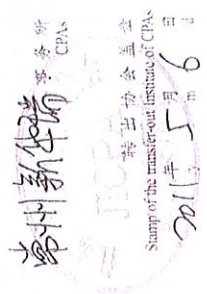 常州新华瑞 事务所
CPAs
JICPA
转出协会盖章
Stamp of the transfer-out Institute of CPAs
2011年5月6日
y m d